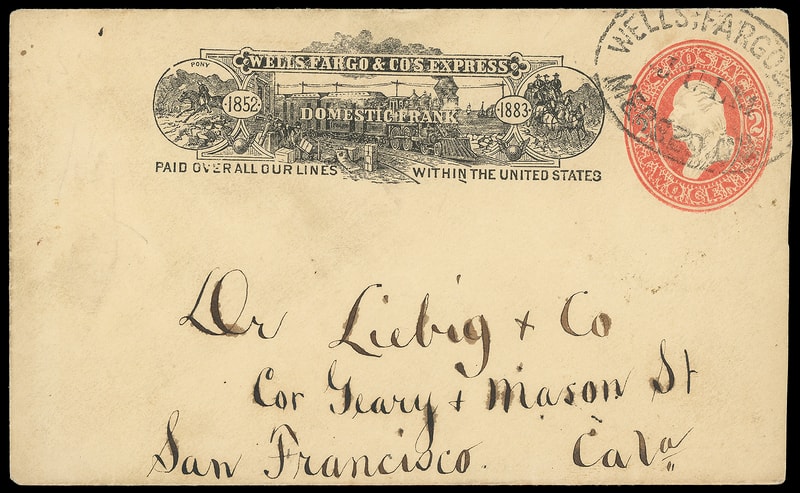 WELLS, FARGO & CO'S. EXPRESS
PONY
1852
DOMESTIC FRANK
1883
PAID OVER ALL OUR LINES
WITHIN THE UNITED STATES
WELLS, FARGO &
POSTAGE
TWO CENTS
Dr Liebig + Co
Cor Geary + Mason St
San Francisco. Cala